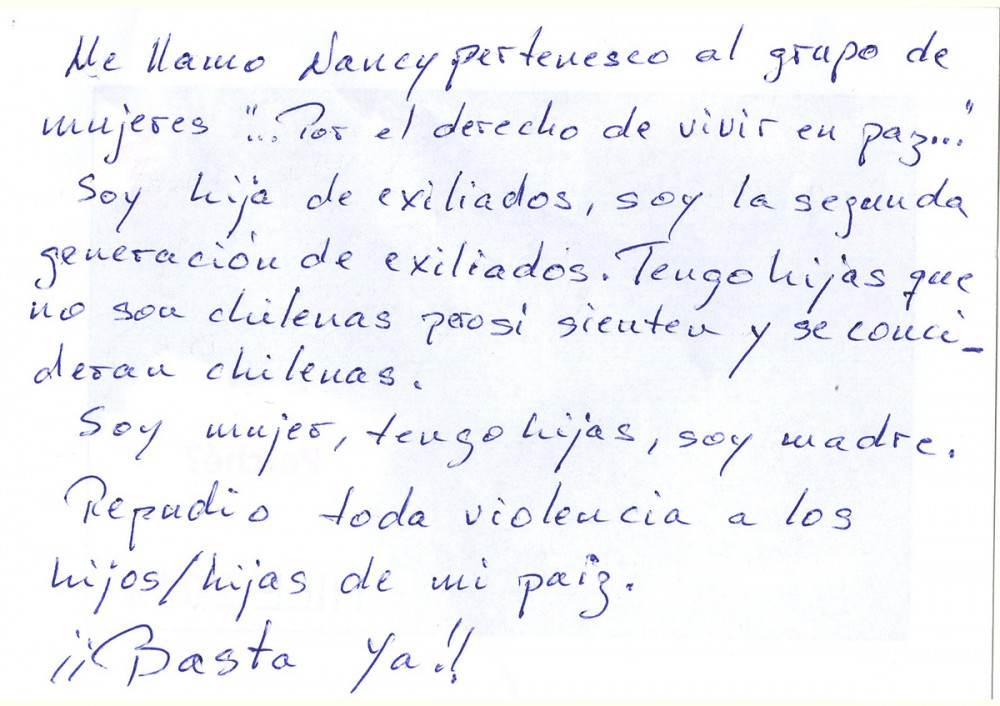 Me llamo Nancy pertenesco al grupo de
mujeres "...Por el derecho de vivir en paz..."
Soy hija de exiliados, soy la segunda
generación de exiliados. Tengo hijas que
no son chilenas pero si sienten y se conci-
deran chilenas.
Soy mujer, tengo hijas, soy madre.
Repudio toda violencia a los
hijos/hijas de mi paiz.
¡¡Basta Ya!!